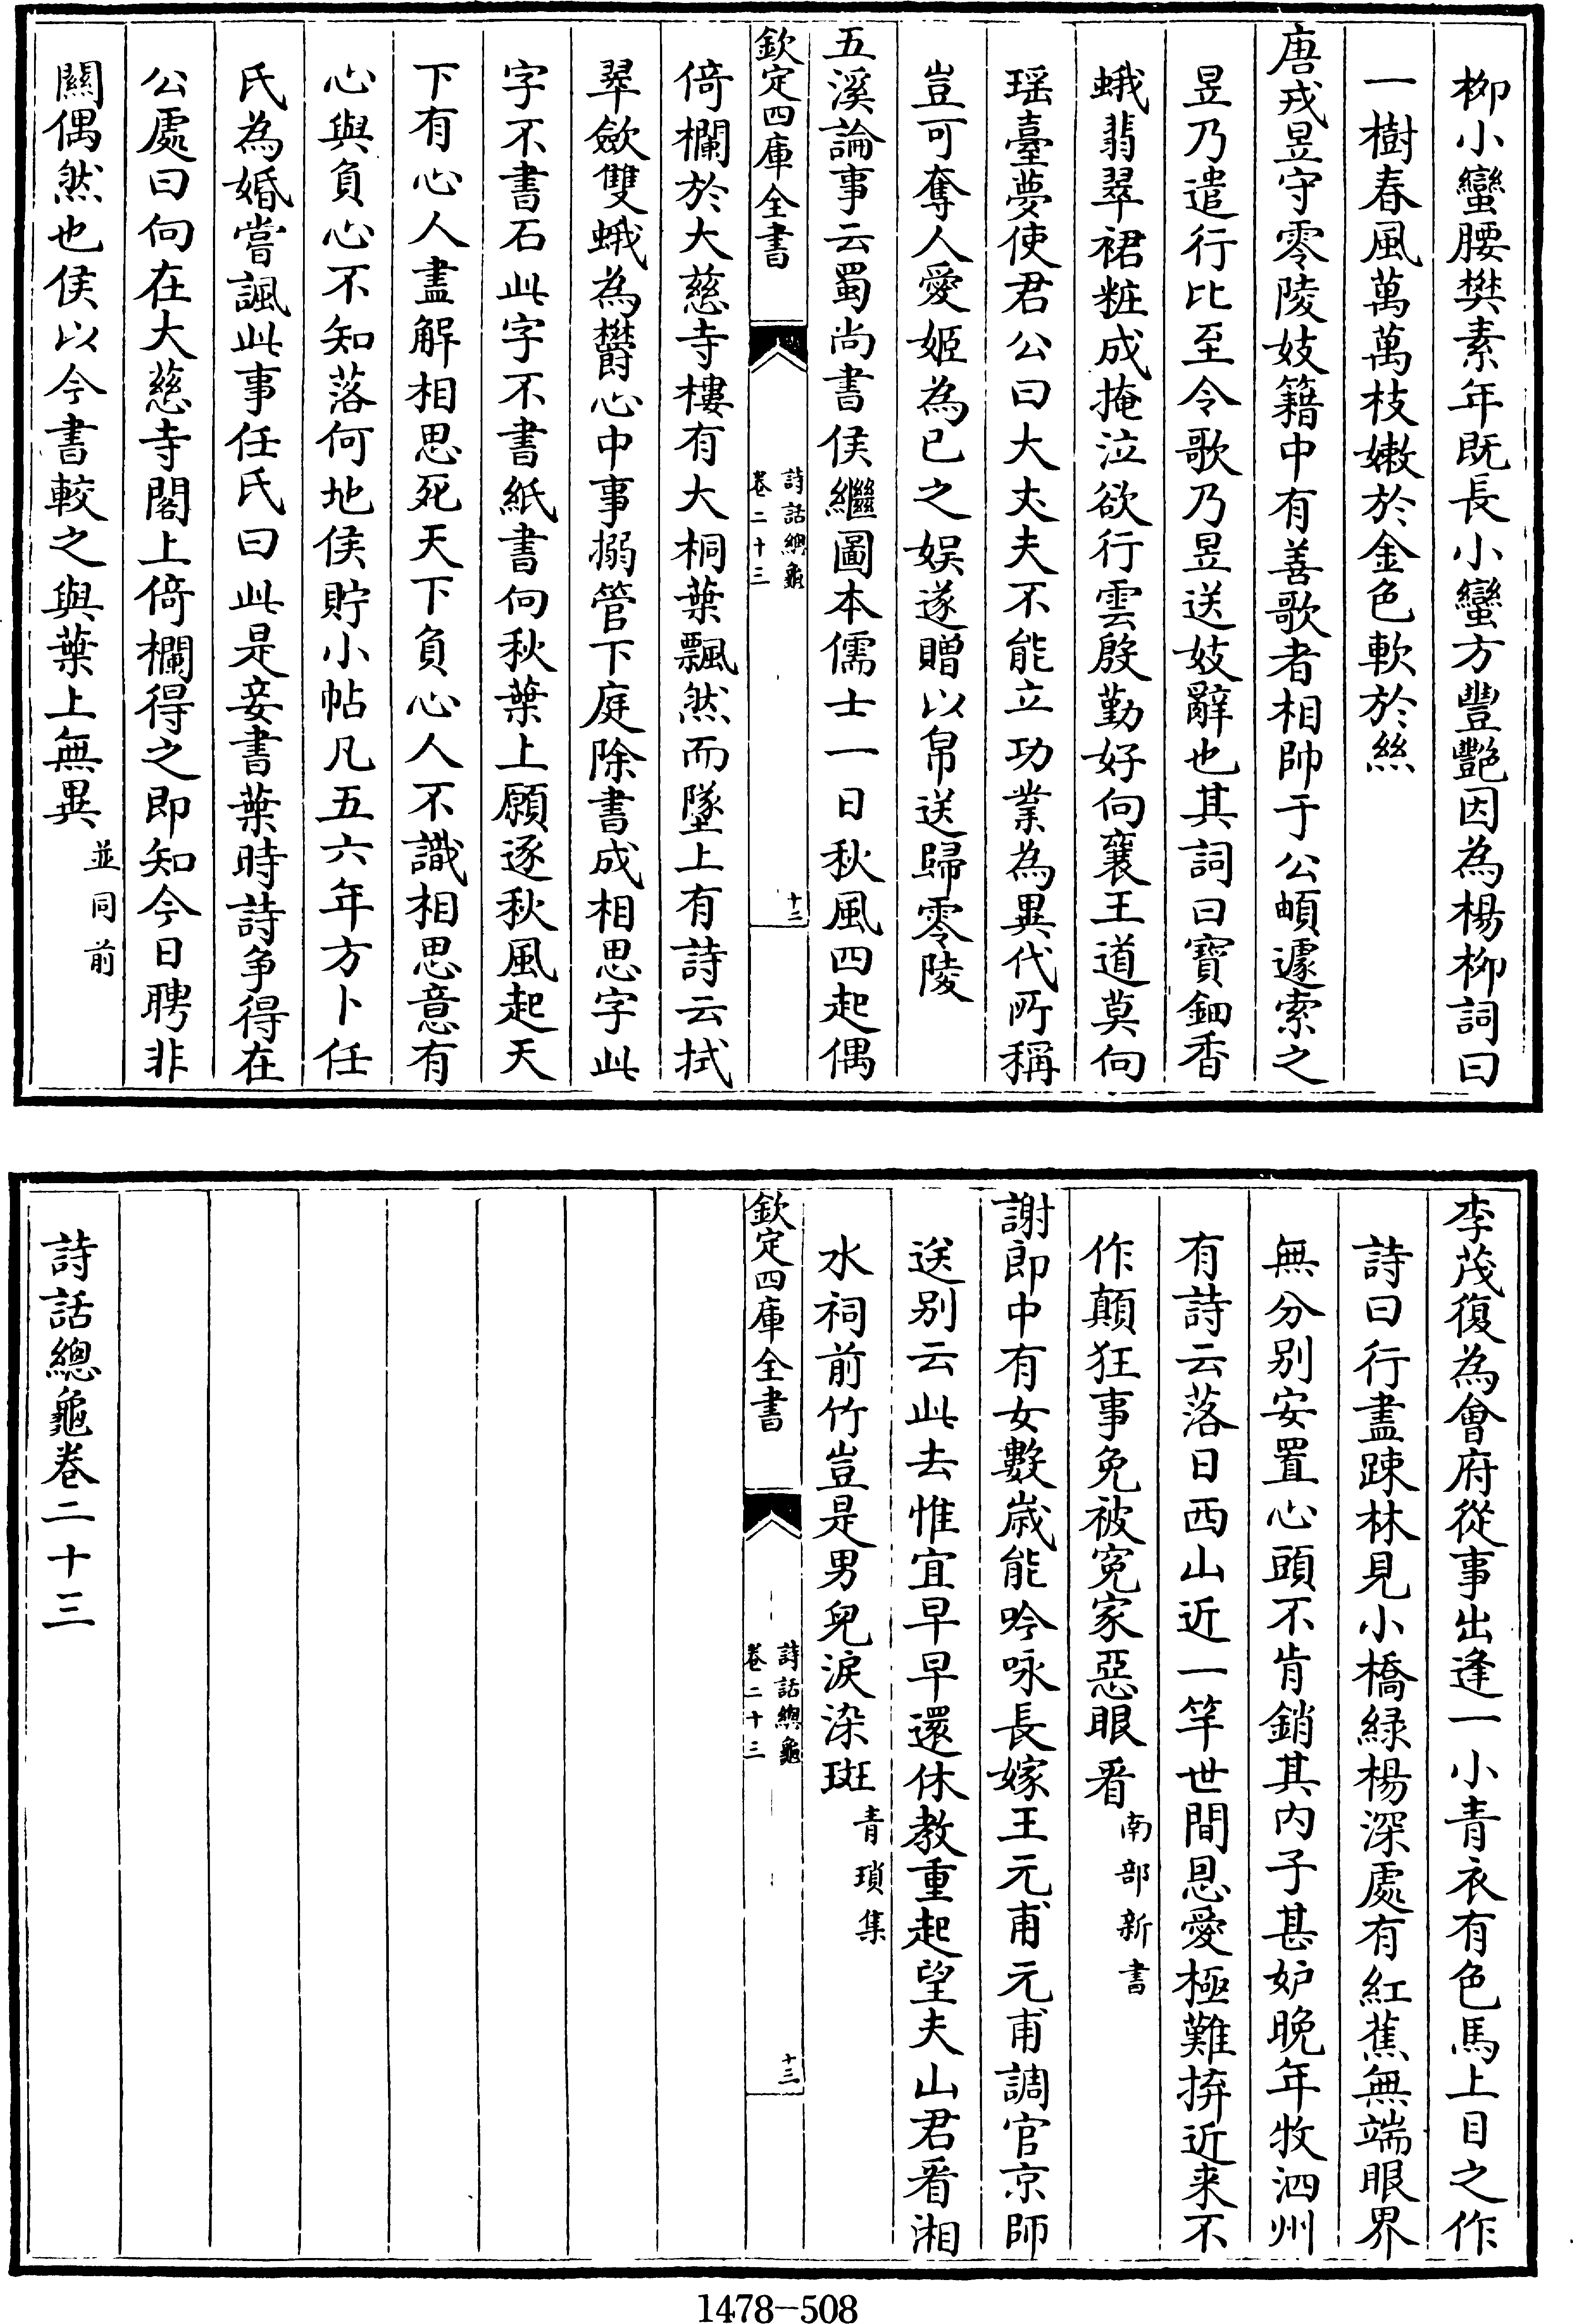 柳小蠻腰樊素年既長小蠻方豐艷因為楊柳詞曰
一樹春風萬萬枝嫩於金色軟於絲
唐戎昱守零陵妓籍中有善歌者相帥于公頔遽索之
昱乃遣行比至令歌乃昱送妓辭也其詞曰寶鈿香
蛾翡翠裙粧成掩泣欲行雲殷勤好向襄王道莫向
瑶臺夢使君公曰大丈夫不能立功業為異代所稱
豈可奪人愛姬為已之娱遂贈以帛送歸零陵
五溪論事云蜀尚書侯繼圖本儒士一日秋風四起偶
欽定四庫全書
詩話總龜
卷二十三
十二
倚欄於大慈寺樓有大桐葉飄然而墜上有詩云拭
翠斂雙蛾為欝心中事搦管下庭除書成相思字此
字不書石此字不書紙書向秋葉上願逐秋風起天
下有心人盡解相思死天下負心人不識相思意有
心與負心不知落何地侯貯小帖凡五六年方卜任
氏為婚嘗諷此事任氏曰此是妾書葉時詩争得在
公處曰向在大慈寺閣上倚欄得之即知今日聘非
關偶然也侯以今書較之與葉上無異並同前
李茂復為會府從事出逢一小青衣有色馬上目之作
詩曰行盡踈林見小橋緑楊深處有紅蕉無端眼界
無分别安置心頭不肯銷其内子甚妒晚年牧泗州
有詩云落日西山近一竿世間恩愛極難拚近来不
作顛狂事免被寃家惡眼看南部新書
謝郎中有女數歲能吟咏長嫁王元甫元甫調官京師
送别云此去惟宜早早還休教重起望夫山君看湘
水祠前竹豈是男兒淚染斑青瑣集
欽定四庫全書
詩話總龜
卷二十三
十三
詩話總龜卷二十三
1478-508